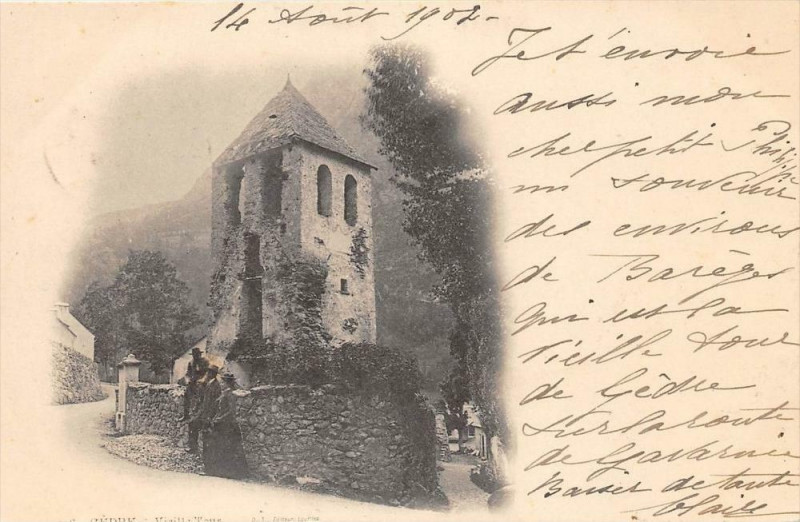 14 Août 1902 -
Je t'envoie
aussi mon
cher petit Philippe
un souvenir
des environs
de Barèges
Qui est la
Vieille tour
de Gèdre
sur la route
de Gavarnie
Baiser de tante
GÈDRE - Vieille Tour